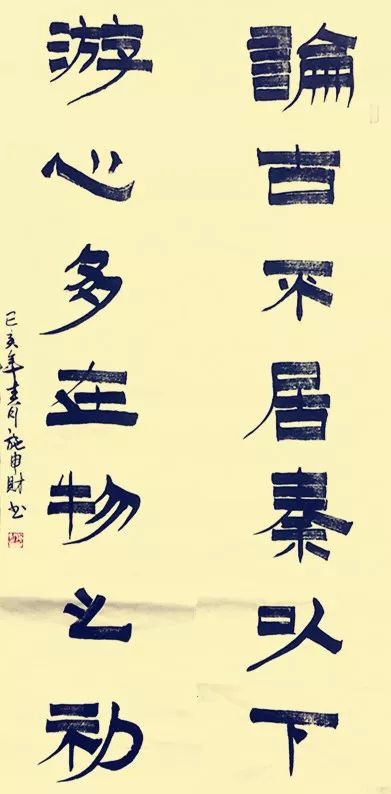 論古不居秦以下
游心多在物之初
己亥年春月施申財书